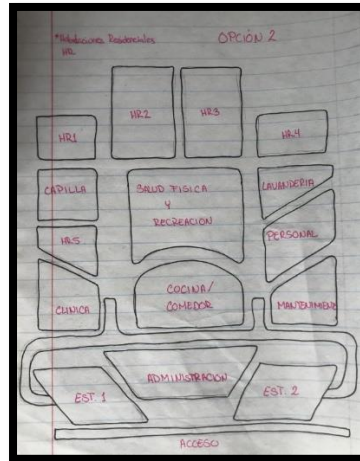 *Habitaciones Residenciales
HR
OPCIÓN 2
HR2
HR3
HR1
HR4
CAPILLA
SALUD FISICA
Y
RECREACION
LAVANDERIA
HR5
PERSONAL
CLINICA
COCINA/
COMEDOR
MANTENIMIENT
ADMINISTRACION
EST. 1
EST. 2
ACCESO